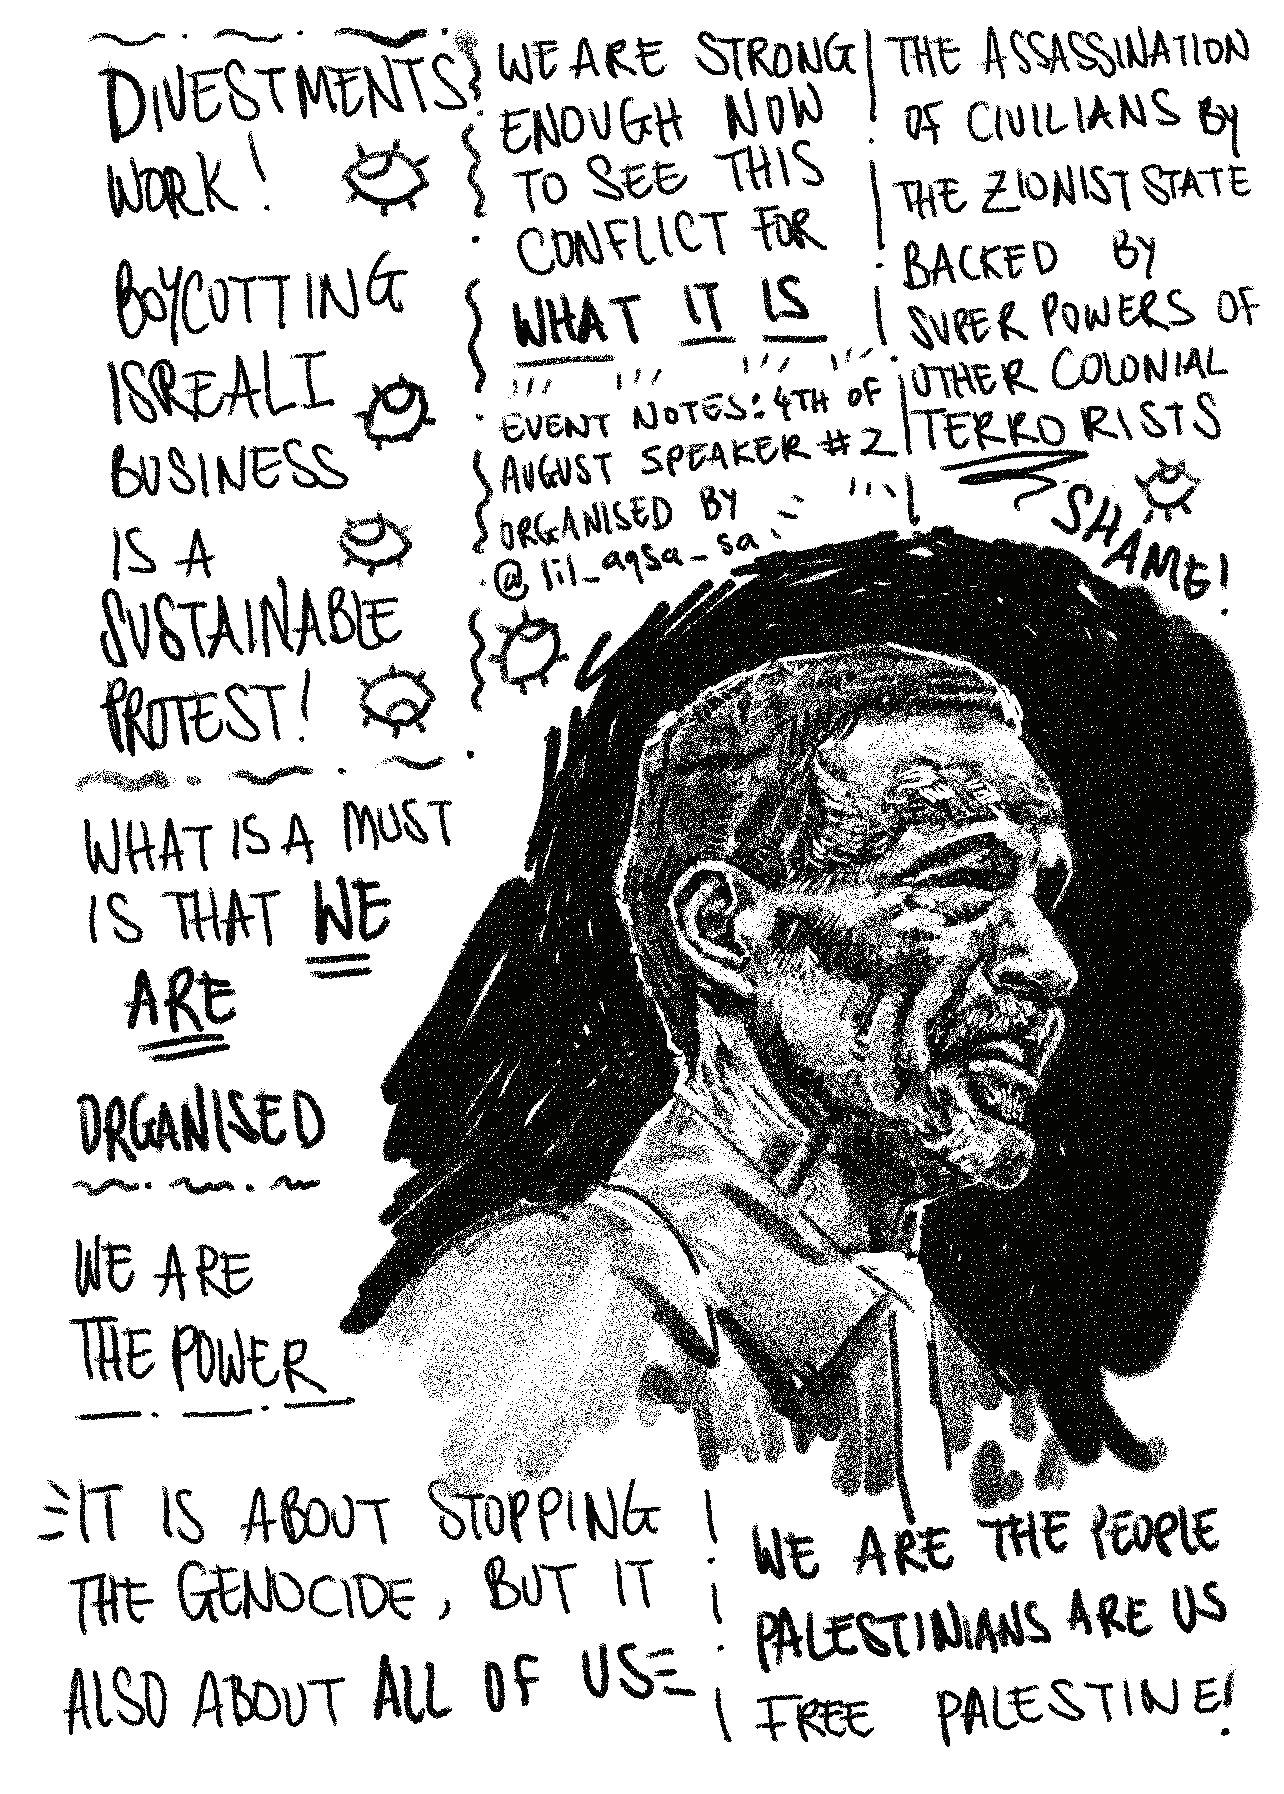 DIVESTMENTS
WORK!
BOYCOTTING
ISREALI
BUSINESS
IS A
SUSTAINABLE
PROTEST!
WHAT IS A MUST
IS THAT WE
ARE
ORGANISED
WE ARE
THE POWER
WE ARE STRONG
ENOUGH NOW
TO SEE THIS
CONFLICT FOR
WHAT IT IS
EVENT NOTES: 4TH OF
AUGUST SPEAKER #2
ORGANISED BY
@lil_aqsa_sa
THE ASSASSINATION
OF CIVILIANS BY
THE ZIONIST STATE
BACKED BY
SUPER POWERS OF
OTHER COLONIAL
TERRORISTS
SHAME!
IT IS ABOUT STOPPING
THE GENOCIDE, BUT IT
ALSO ABOUT ALL OF US
WE ARE THE PEOPLE
PALESTINIANS ARE US
FREE PALESTINE!